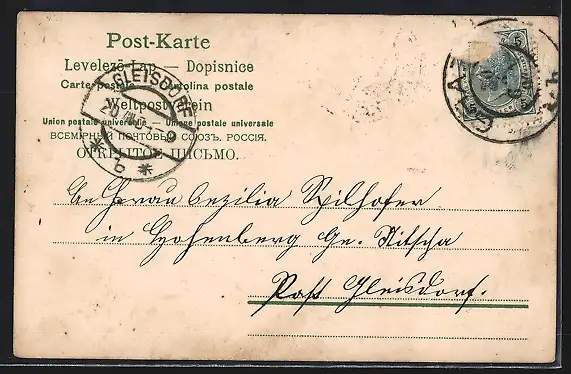 Post-Karte
Levelező-Lap — Dopisnice
Carte postale — Cartolina postale
Weltpostverein
Union postale universelle — Unione postale universale
ВСЕМІРНЫЙ ПОЧТОВЫЙ СОЮЗЪ. РОССІЯ.
ОТКРЫТОЕ ПИСЬМО.
GLEISDORF
GRAZ
An Frau Cezilia Spilhofer
in Hohenberg Ge. Nitscha
Post Gleisdorf.